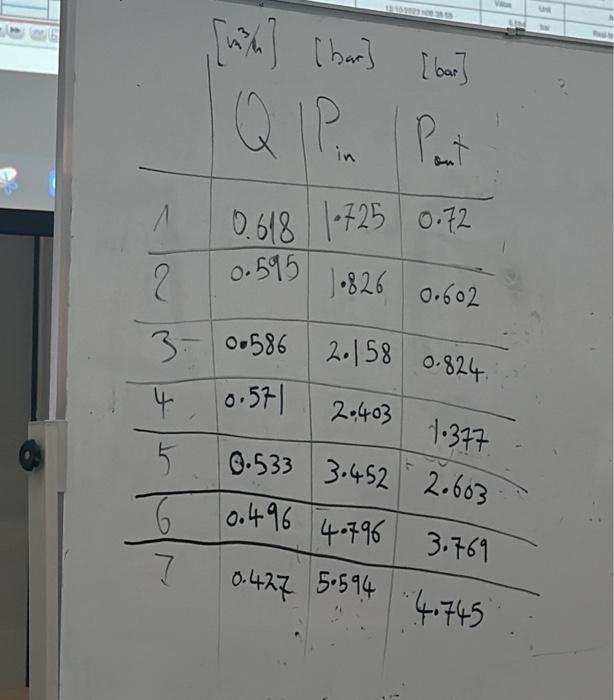 Value Unit
12/10/2023 h08:38:59
bar
[m³/h] [bar] [bar]
Q Pin Pout
1 0.618 1.725 0.72
2 0.595 1.826 0.602
3 0.586 2.158 0.824
4 0.571 2.403 1.377
5 0.533 3.452 2.603
6 0.496 4.796 3.769
7 0.427 5.594 4.745